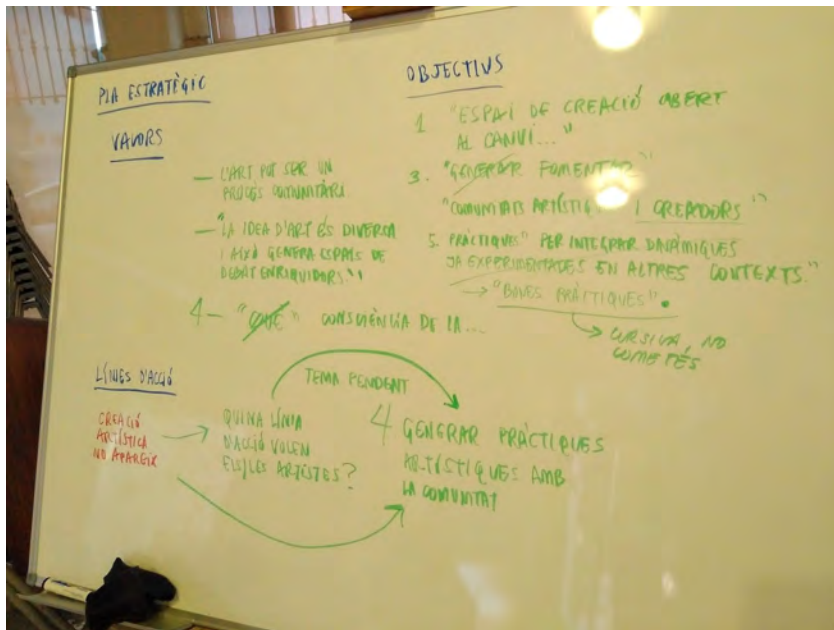 PLA ESTRATÈGIC
VALORS
— L'ART POT SER UN
PROCÉS COMUNITARI
— "LA IDEA D'ART ÉS DIVERSA
I AIXÒ GENERA ESPAIS DE
DEBAT ENRIQUIDORS."
4 — "QUE" CONSCIÈNCIA DE LA...
OBJECTIUS
1 "ESPAI DE CREACIÓ OBERT
AL CANVI..."
3. "GENERAR FOMENTAR"
"COMUNITATS ARTÍSTIQ. I CREADORS"
5. PRÀCTIQUES" PER INTEGRAR DINÀMIQUES
JA EXPERIMENTADES EN ALTRES CONTEXTS."
→ "BONES PRÀCTIQUES".
→ CURSIVA, NO
COMETES
LÍNIES D'ACCIÓ
CREACIÓ
ARTÍSTICA
NO APAREIX
QUINA LÍNIA
D'ACCIÓ VOLEN
ELS/LES ARTISTES?
TEMA PENDENT
4 GENERAR PRÀCTIQUES
ARTÍSTIQUES AMB
LA COMUNITAT